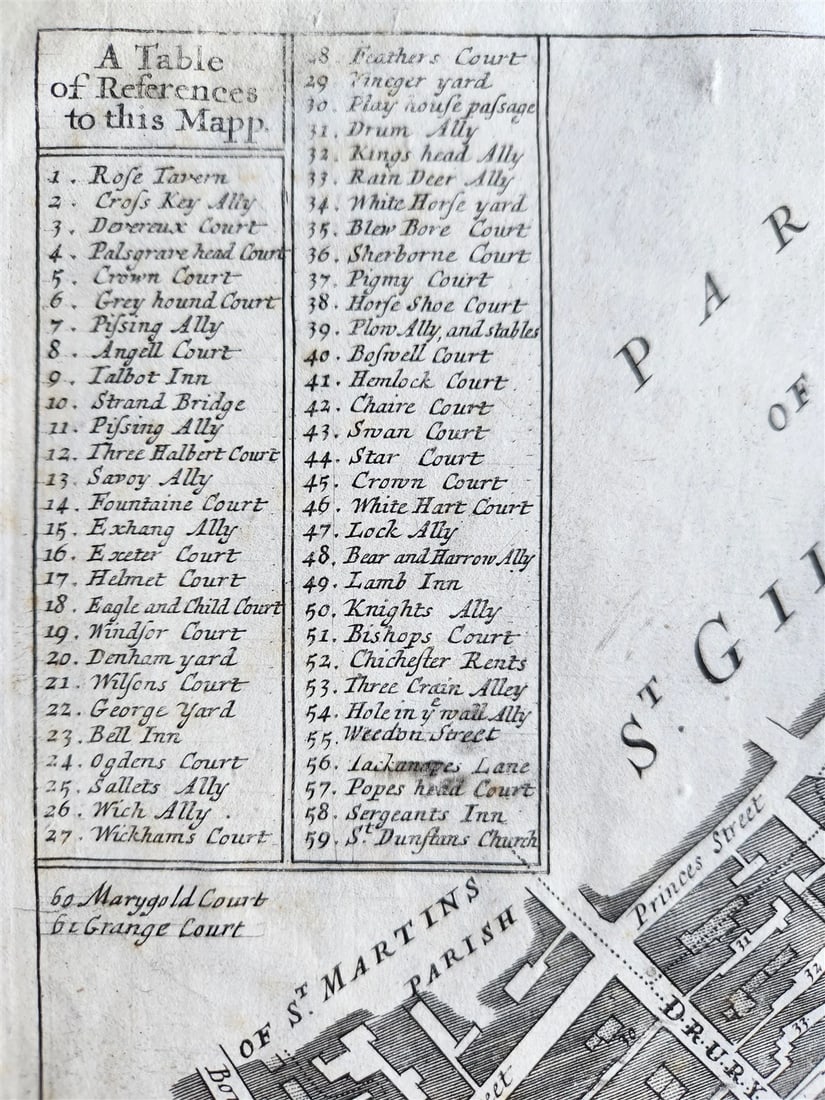 A Table
of References
to this Mapp.
1. Roſe Tavern
2. Croſs Key Ally
3. Devereux Court
4. Palsgrave head Court
5. Crown Court
6. Grey hound Court
7. Piſsing Ally
8. Angell Court
9. Talbot Inn
10. Strand Bridge
11. Piſsing Ally
12. Three Halbert Court
13. Savoy Ally
14. Fountaine Court
15. Exhang Ally
16. Exeter Court
17. Helmet Court
18. Eagle and Child Court
19. Windſor Court
20. Denham yard
21. Wilſons Court
22. George Yard
23. Bell Inn
24. Ogdens Court
25. Sallets Ally
26. Wich Ally.
27. Wickhams Court
28 Feathers Court
29 Vineger yard
30. Play houſe paſsage
31. Drum Ally
32. Kings head Ally
33. Rain Deer Ally
34. White Horſe yard
35. Blew Bore Court
36. Sherborne Court
37. Pigmy Court
38. Horſe Shoe Court
39. Plow Ally, and stables
40. Boſwell Court
41. Hemlock Court
42. Chaire Court
43. Swan Court
44. Star Court
45. Crown Court
46. White Hart Court
47. Lock Ally
48. Bear and Harrow Ally
49. Lamb Inn
50. Knights Ally
51. Bishops Court
52. Chicheſter Rents
53. Three Crain Alley
54. Hole in yͤ wall Ally
55. Weedon Street
56. Iackanapes Lane
57. Popes head Court
58. Sergeants Inn
59. Sᵗ. Dunſtans Church
60 Marygold Court
61 Grange Court
PAR
OF
Sᵀ. GIL
OF Sᵀ. MARTINS
PARISH
Princes Street
DRURY
31
32
33